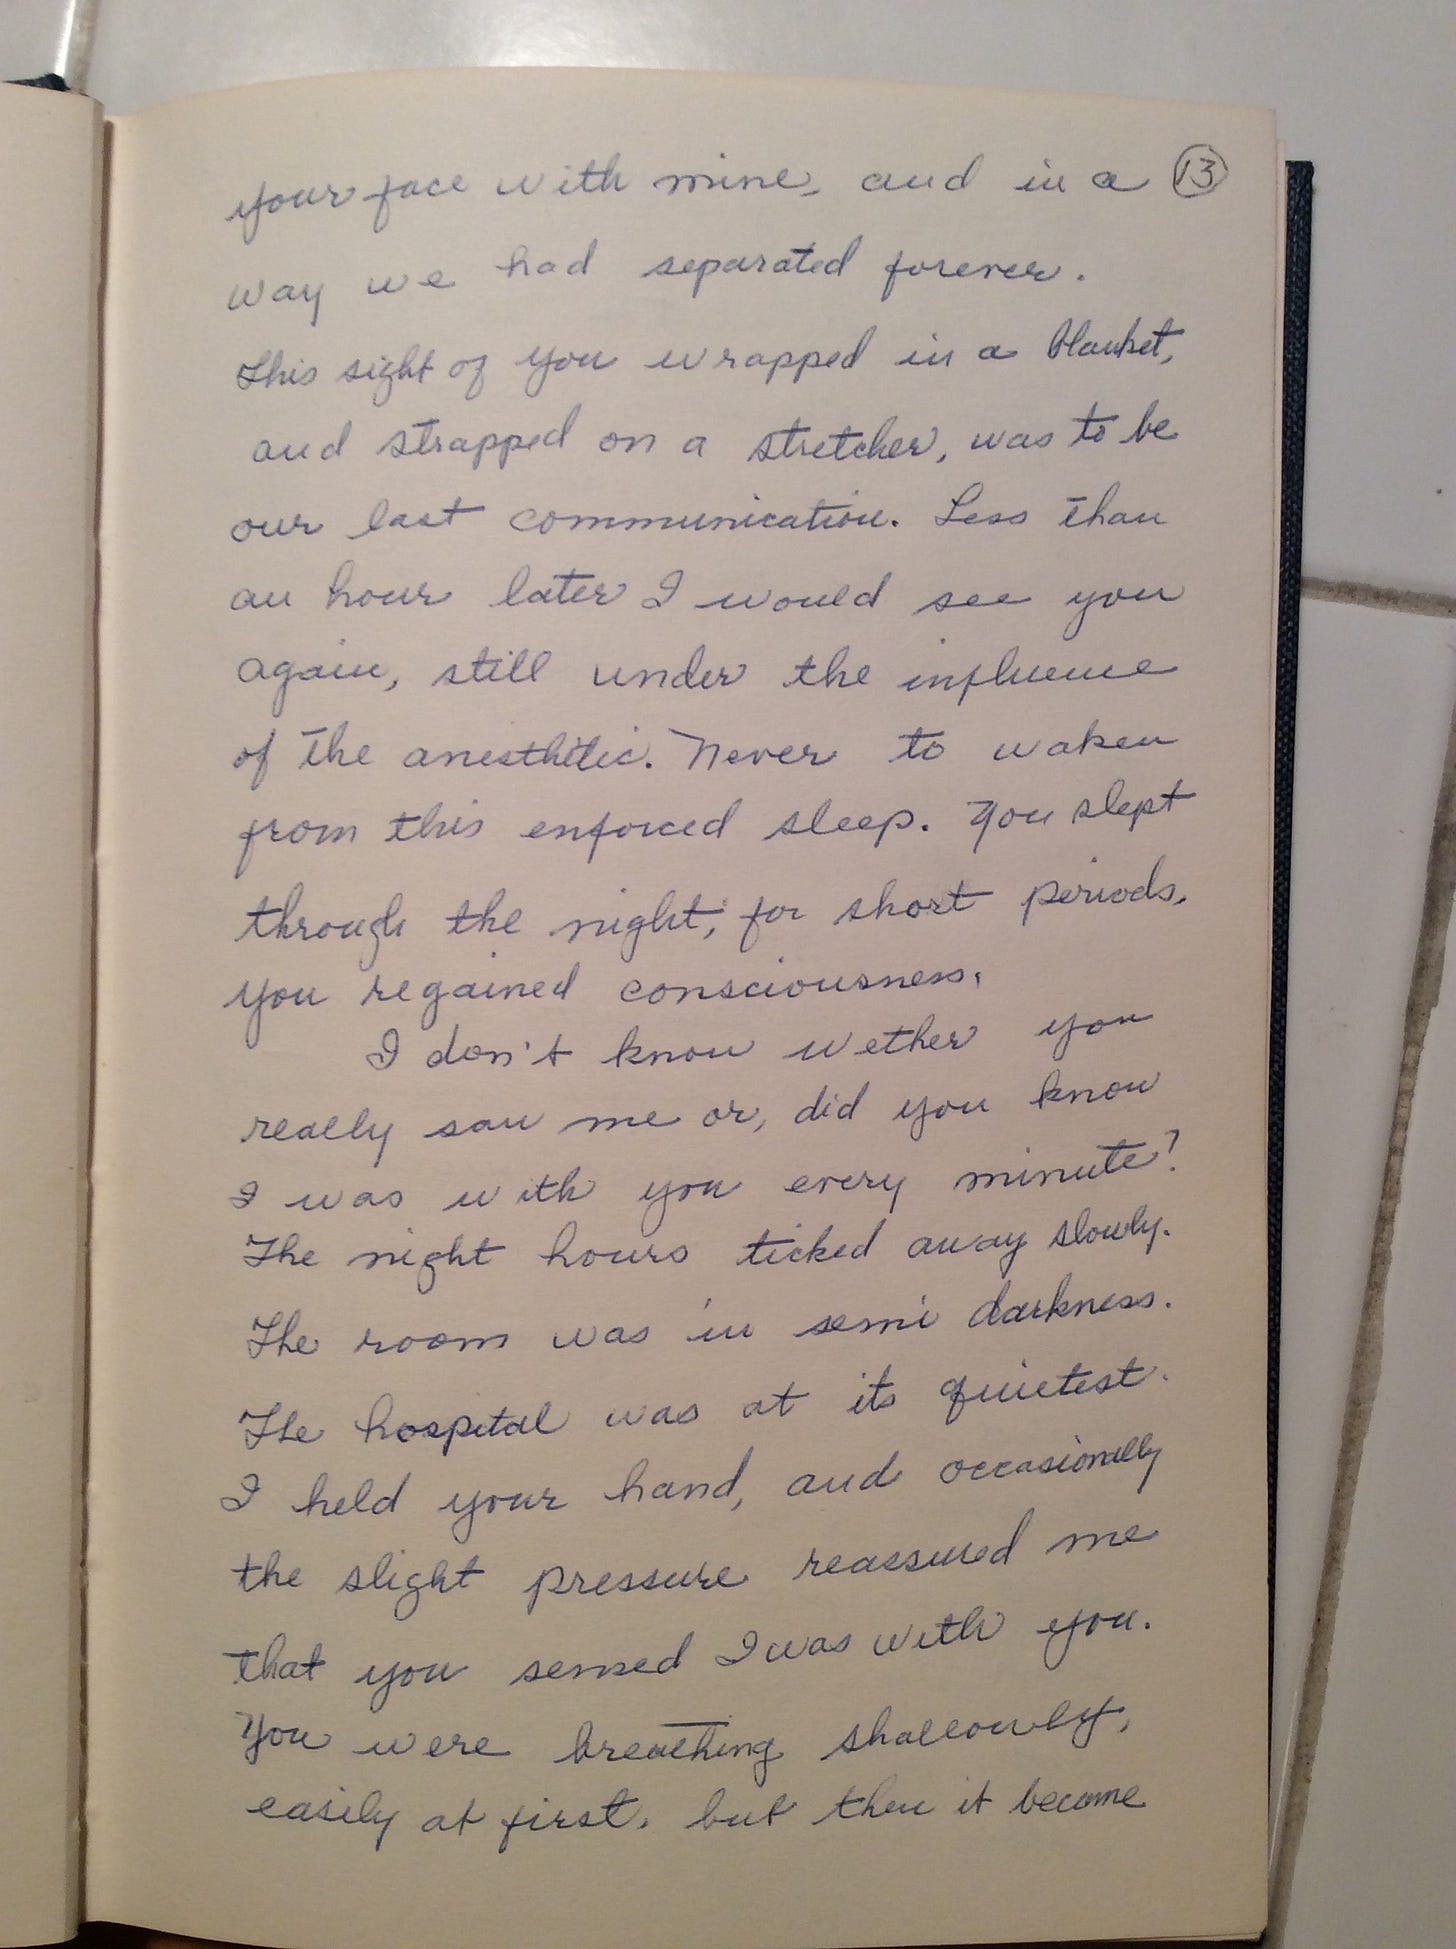 your face with mine, and in a 13
way we had separated forever.
This sight of you wrapped in a blanket,
and strapped on a stretcher, was to be
our last communication. Less than
an hour later I would see you
again, still under the influence
of the anesthitic. Never to waken
from this enforced sleep. You slept
through the night, for short periods,
you regained consciousness.
I don't know wether you
really saw me or, did you know
I was with you every minute?
The night hours ticked away slowly.
The room was in semi darkness.
The hospital was at its quietest.
I held your hand, and occasionally
the slight pressure reassured me
that you sensed I was with you.
You were breathing shallowly,
easily at first. but then it become